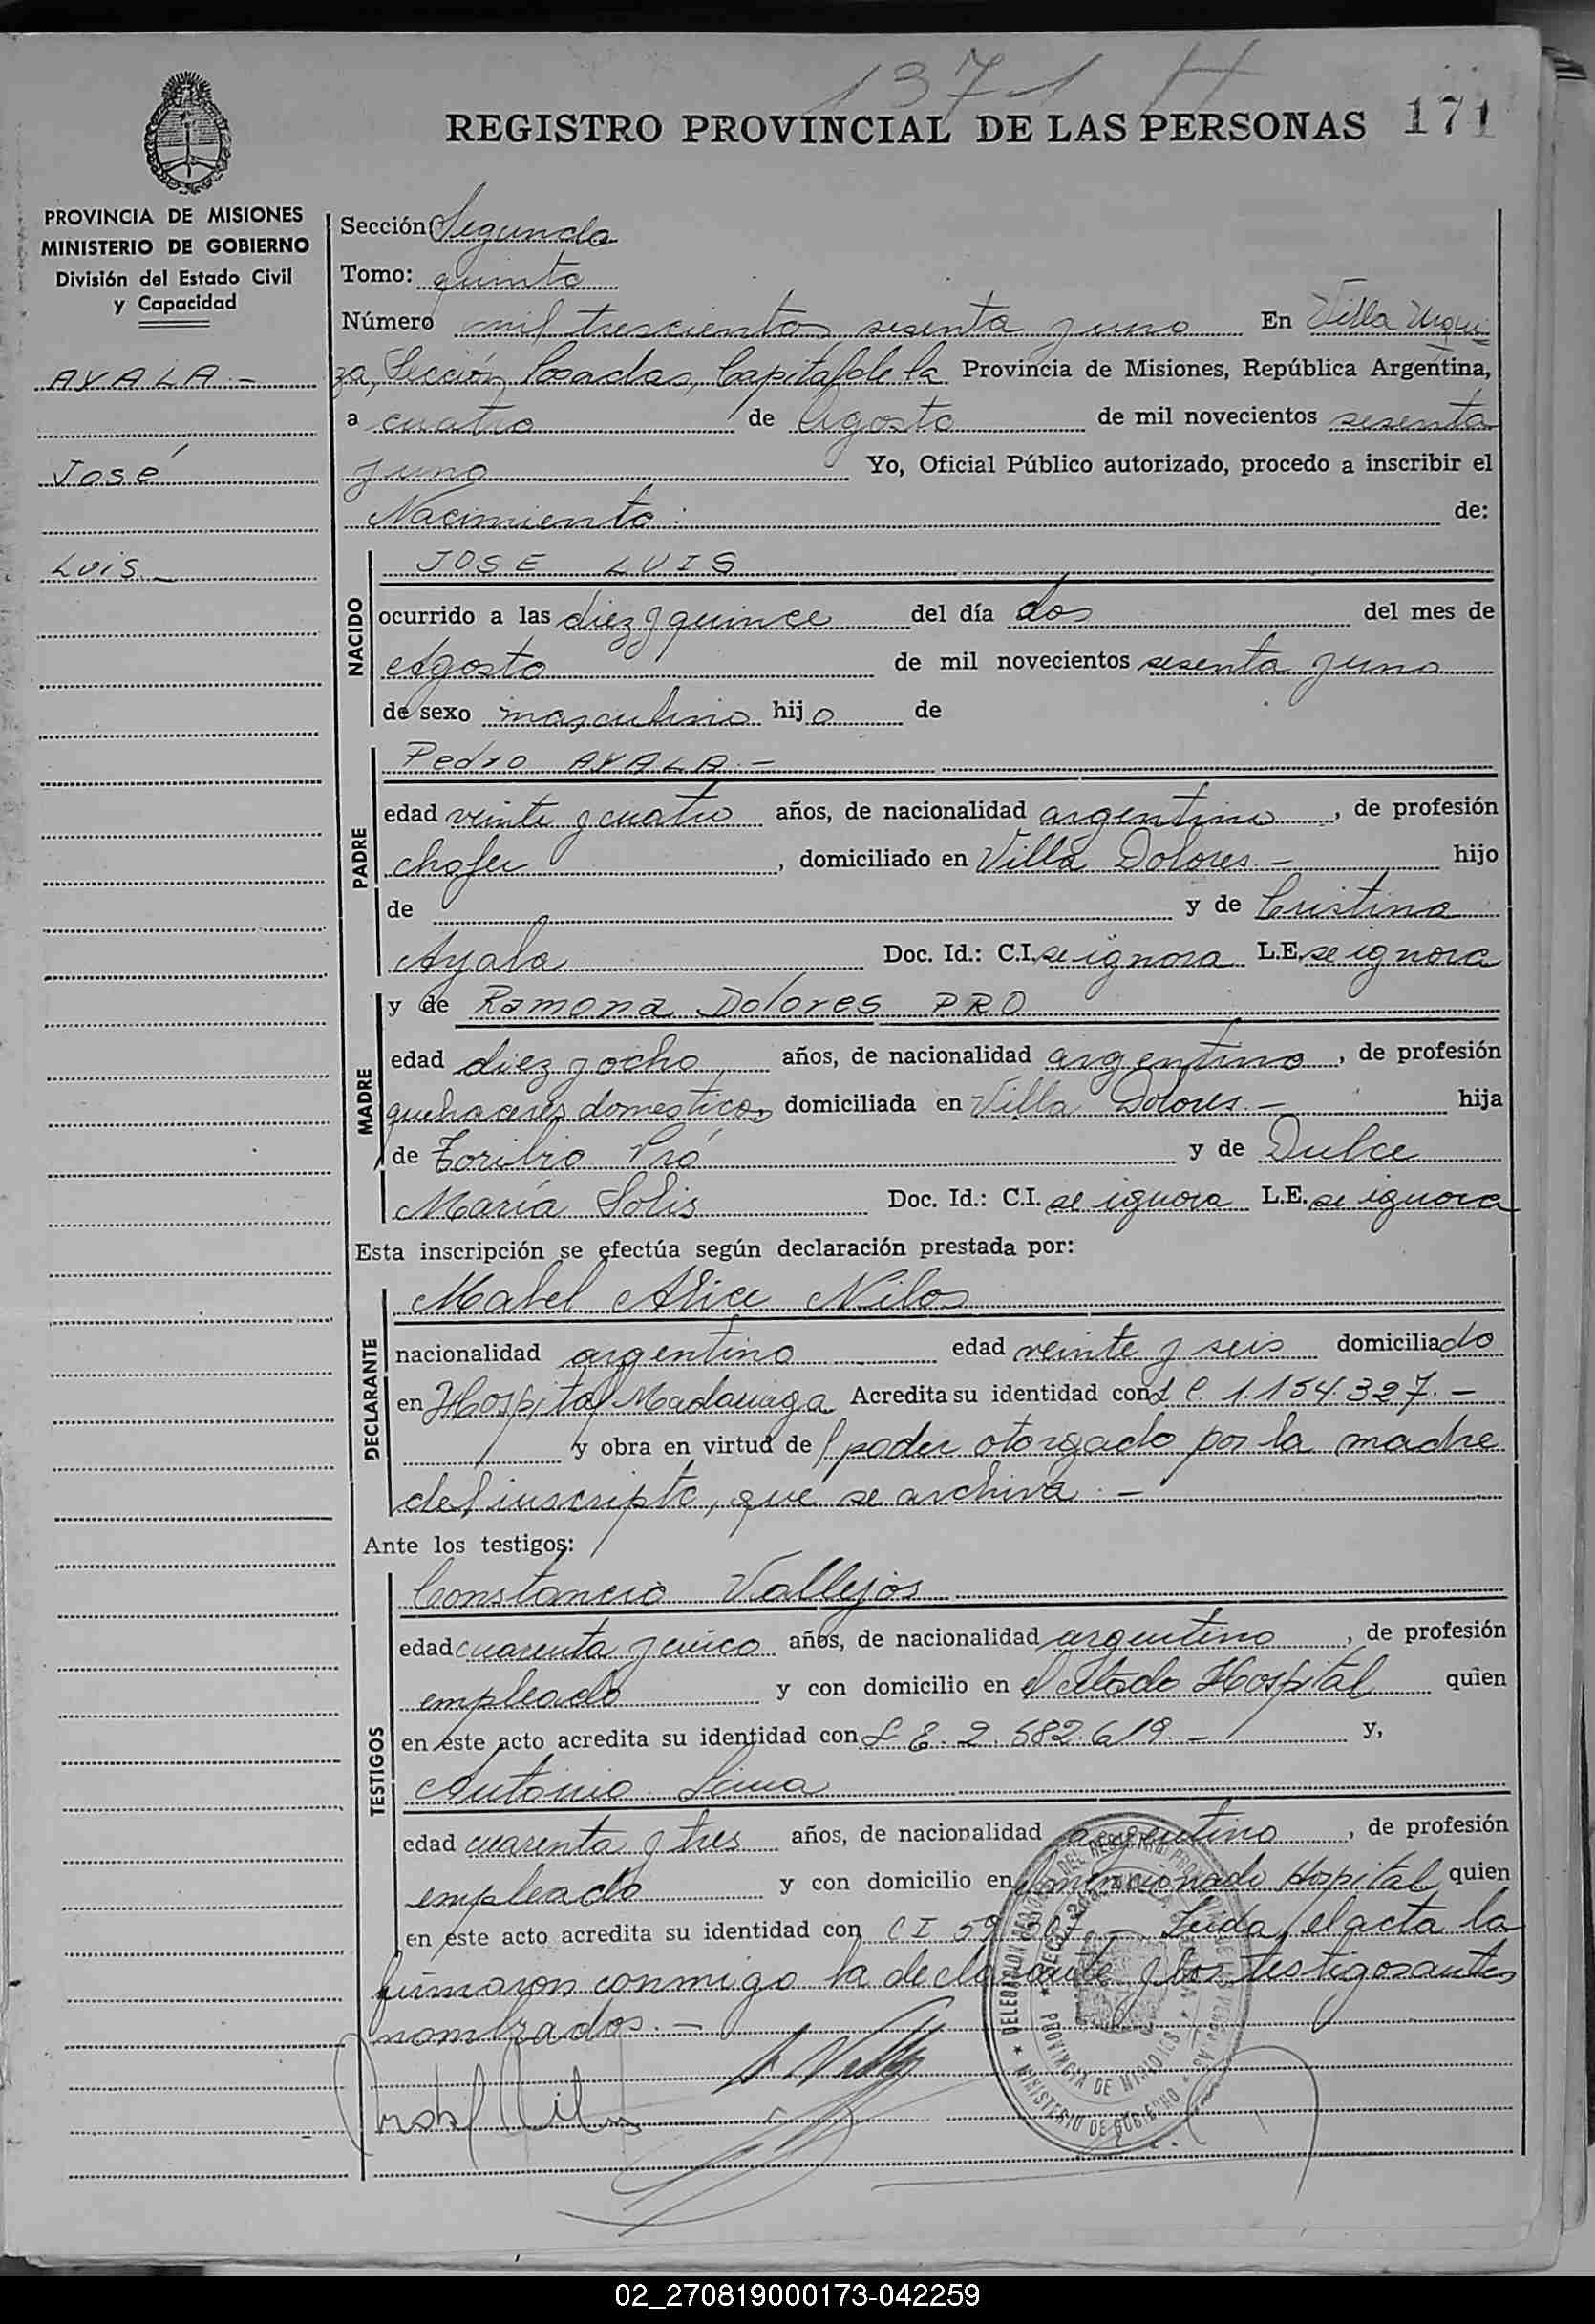 1371 H
REGISTRO PROVINCIAL DE LAS PERSONAS 171
PROVINCIA DE MISIONES
MINISTERIO DE GOBIERNO
División del Estado Civil
y Capacidad
AYALA.-
José
Luis_
Sección Segunda
Tomo: quinto
Número mil trescientos sesenta y uno En Villa Urqui
za, Sección Posadas, Capital de la Provincia de Misiones, República Argentina,
a cuatro de Agosto de mil novecientos sesenta
y uno Yo, Oficial Público autorizado, procedo a inscribir el
Nacimiento: de:
NACIDO
JOSE LUIS
ocurrido a las diez y quince del día dos del mes de
Agosto de mil novecientos sesenta y uno
de sexo masculino hijo de
PADRE
Pedro AYALA.-
edad veinte y cuatro años, de nacionalidad argentino, de profesión
chofer, domiciliado en Villa Dolores.- hijo
de y de Cristina
Ayala Doc. Id.: C.I. se ignora L.E. se ignora
MADRE
y de Ramona Dolores PRO
edad diez y ocho años, de nacionalidad argentina, de profesión
quehaceres domesticos domiciliada en Villa Dolores.- hija
de Toribio Pró y de Dulce
María Solis Doc. Id.: C.I. se ignora L.E. se ignora
Esta inscripción se efectúa según declaración prestada por:
DECLARANTE
Mabel Alice Nilos
nacionalidad argentina edad veinte y seis domiciliado
en Hospital Madariaga Acredita su identidad con L C 1.154.327.-
y obra en virtud de poder otorgado por la madre
del inscripto, que se archiva.-
Ante los testigos:
TESTIGOS
Constancio Vallejos
edad cuarenta y cinco años, de nacionalidad argentino, de profesión
empleado y con domicilio en el citado Hospital quien
en este acto acredita su identidad con L E. 2.582.619.- y,
Antonio Lima
edad cuarenta y tres años, de nacionalidad argentino, de profesión
empleado y con domicilio en el mencionado Hospital quien
en este acto acredita su identidad con C I Leida el acta la
firmaron conmigo la declarante y los testigos antes
nombrados.-
DELEGACION DEL REGISTRO PROVINCIAL DE LAS PERSONAS
PROVINCIA DE MISIONES
MINISTERIO DE GOBIERNO
02_270819000173-042259